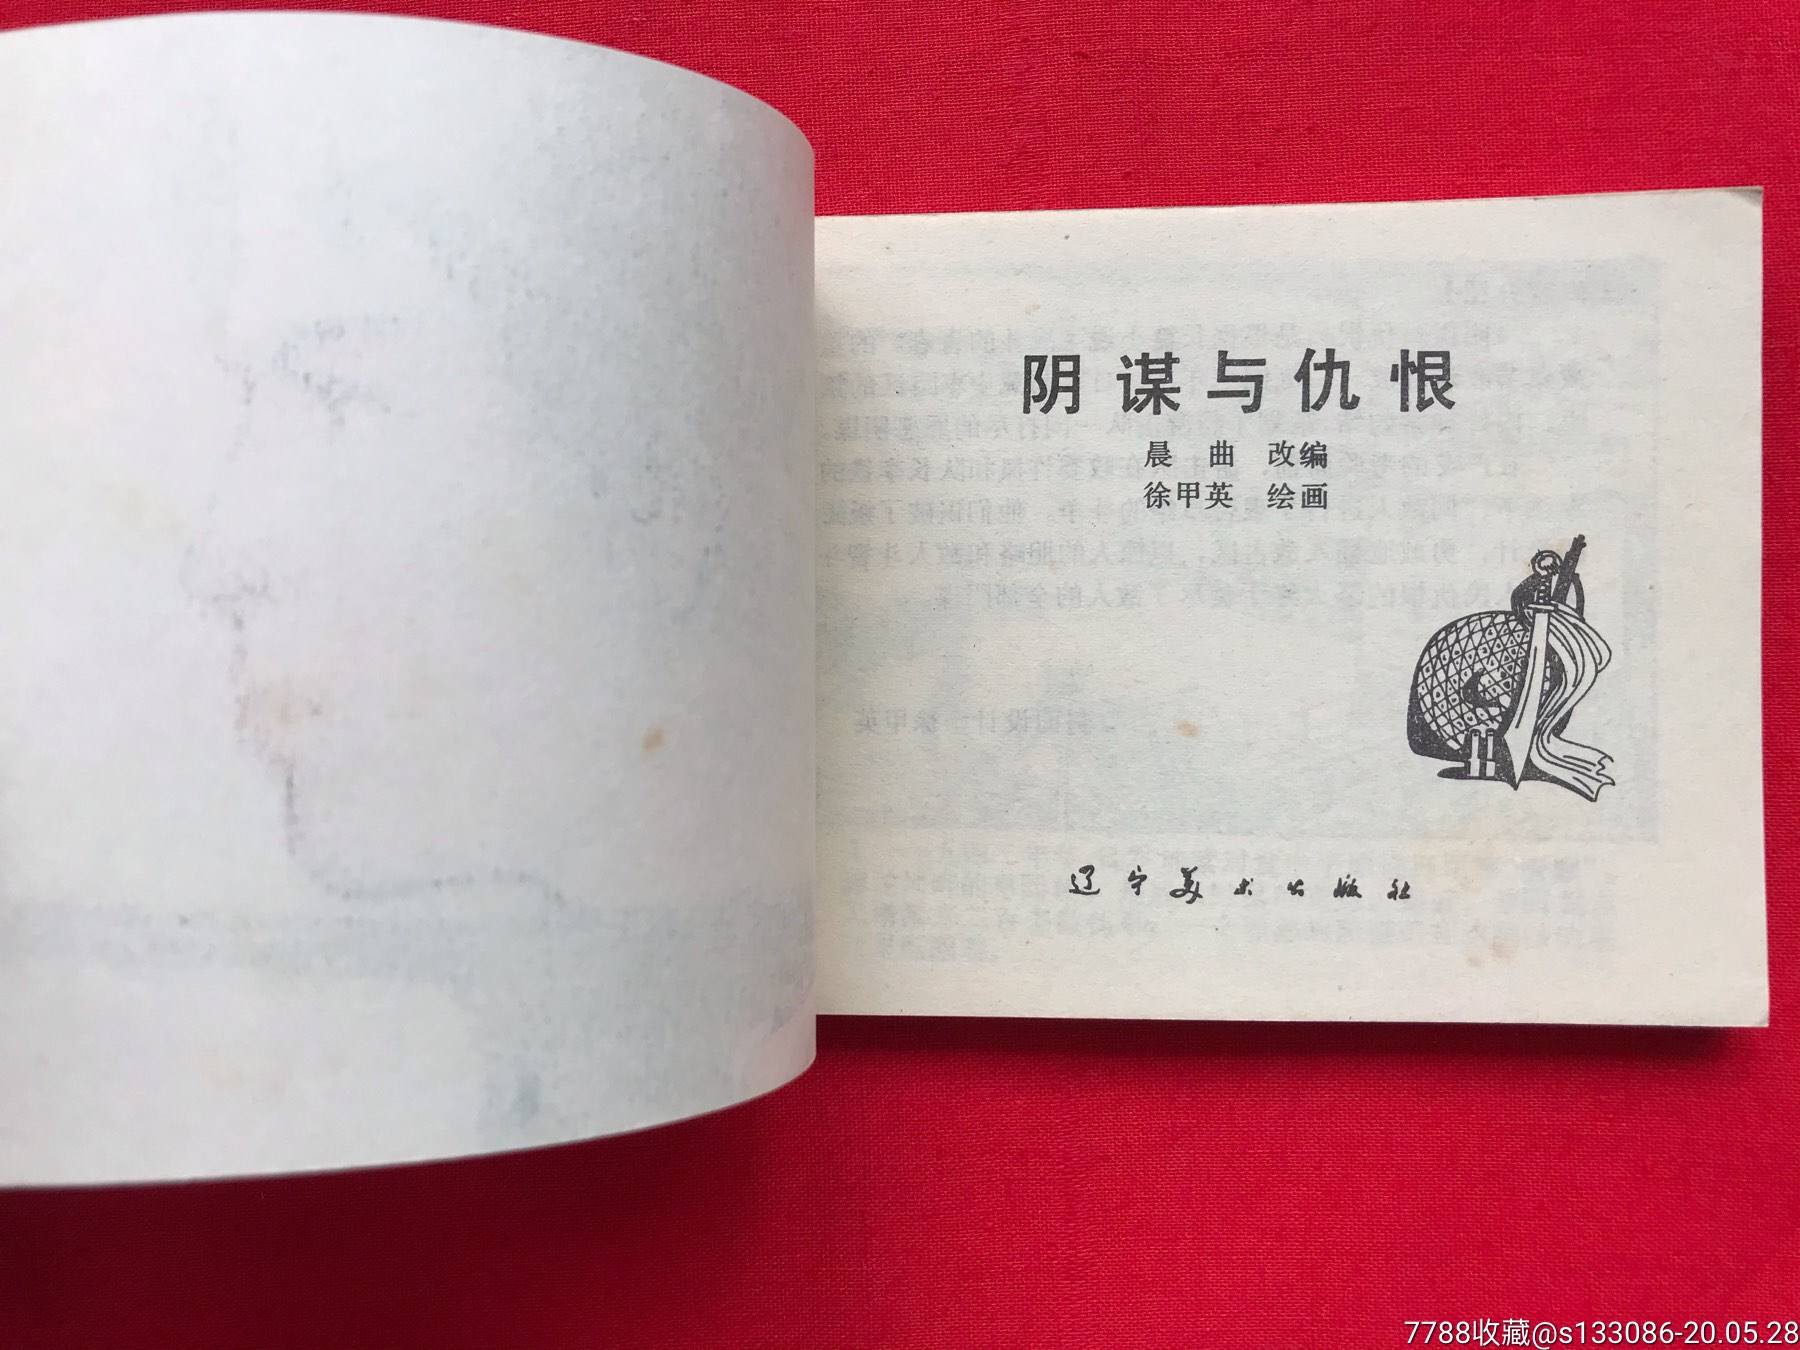 阴谋与仇恨
晨 曲 改编
徐甲英 绘画
辽宁美术出版社
7788收藏@s133086-20.05.28